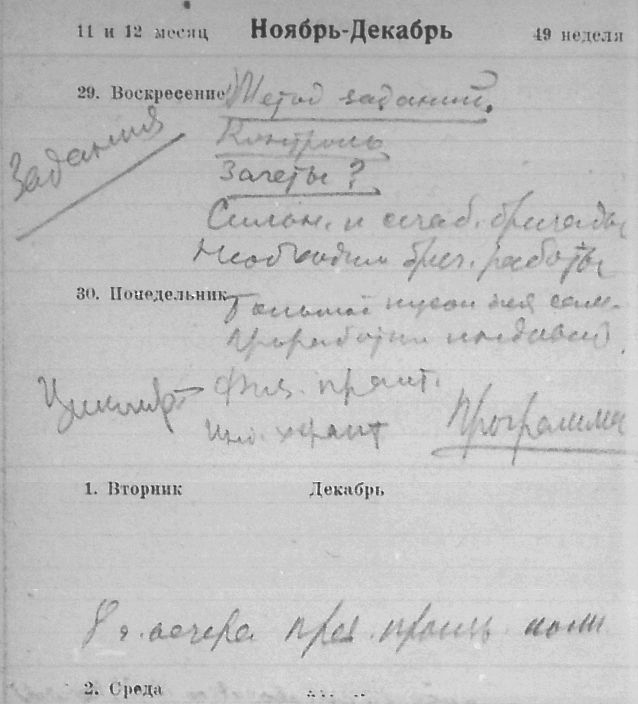 11 и 12 месяц Ноябрь-Декабрь 49 неделя
29. Воскресенье Метод заданий.
Задания
Контроль
Зачеты?
Сильн. и слаб. бригады
Необходим бриг. работы
30. Понедельник Большой кусок для сам.
проработки
физ. практ.
практ Программа
1. Вторник Декабрь
8 ч. вечера през.
2. Среда